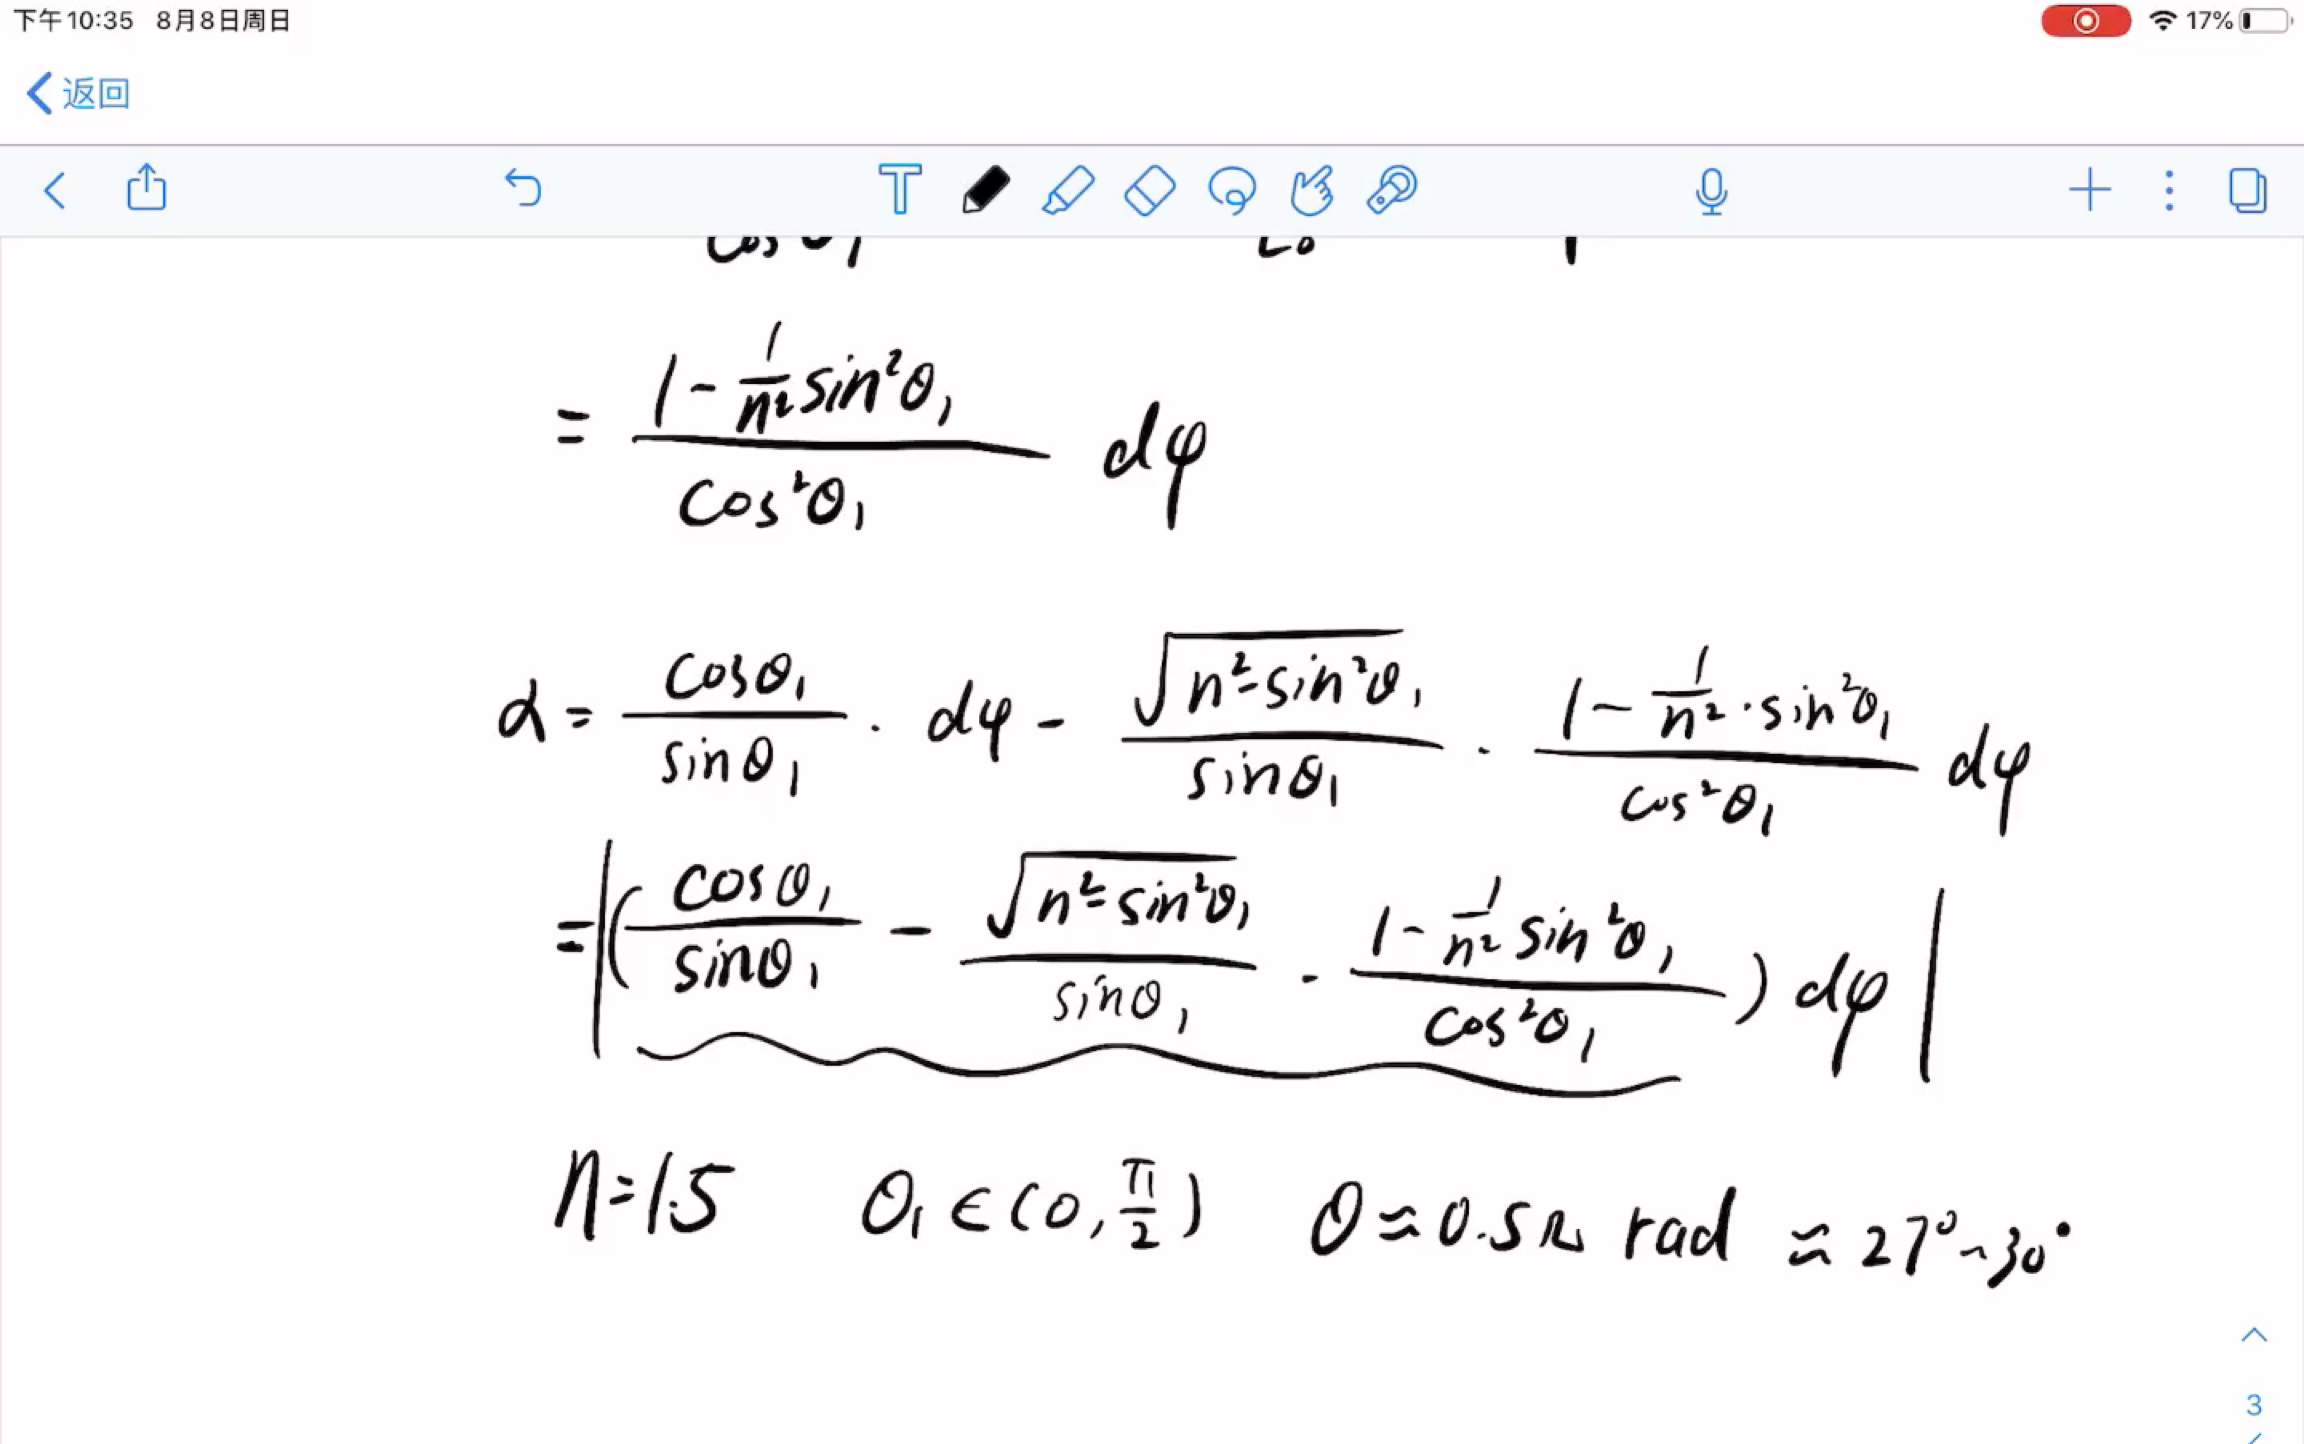 下午10:35 8月8日周日 17%
返回
T
cosθ₁
= (1 - 1/n² sin²θ₁)/(cos²θ₁) dφ
α = cosθ₁/sinθ₁ · dφ - √(n²-sin²θ₁)/sinθ₁ · (1 - 1/n² · sin²θ₁)/(cos²θ₁) dφ
= |(cosθ₁/sinθ₁ - √(n²-sin²θ₁)/sinθ₁ · (1 - 1/n² sin²θ₁)/(cos²θ₁)) dφ|
n=1.5 θ₁∈(0, π/2) θ≈0.52 rad ≈27°~30°
3